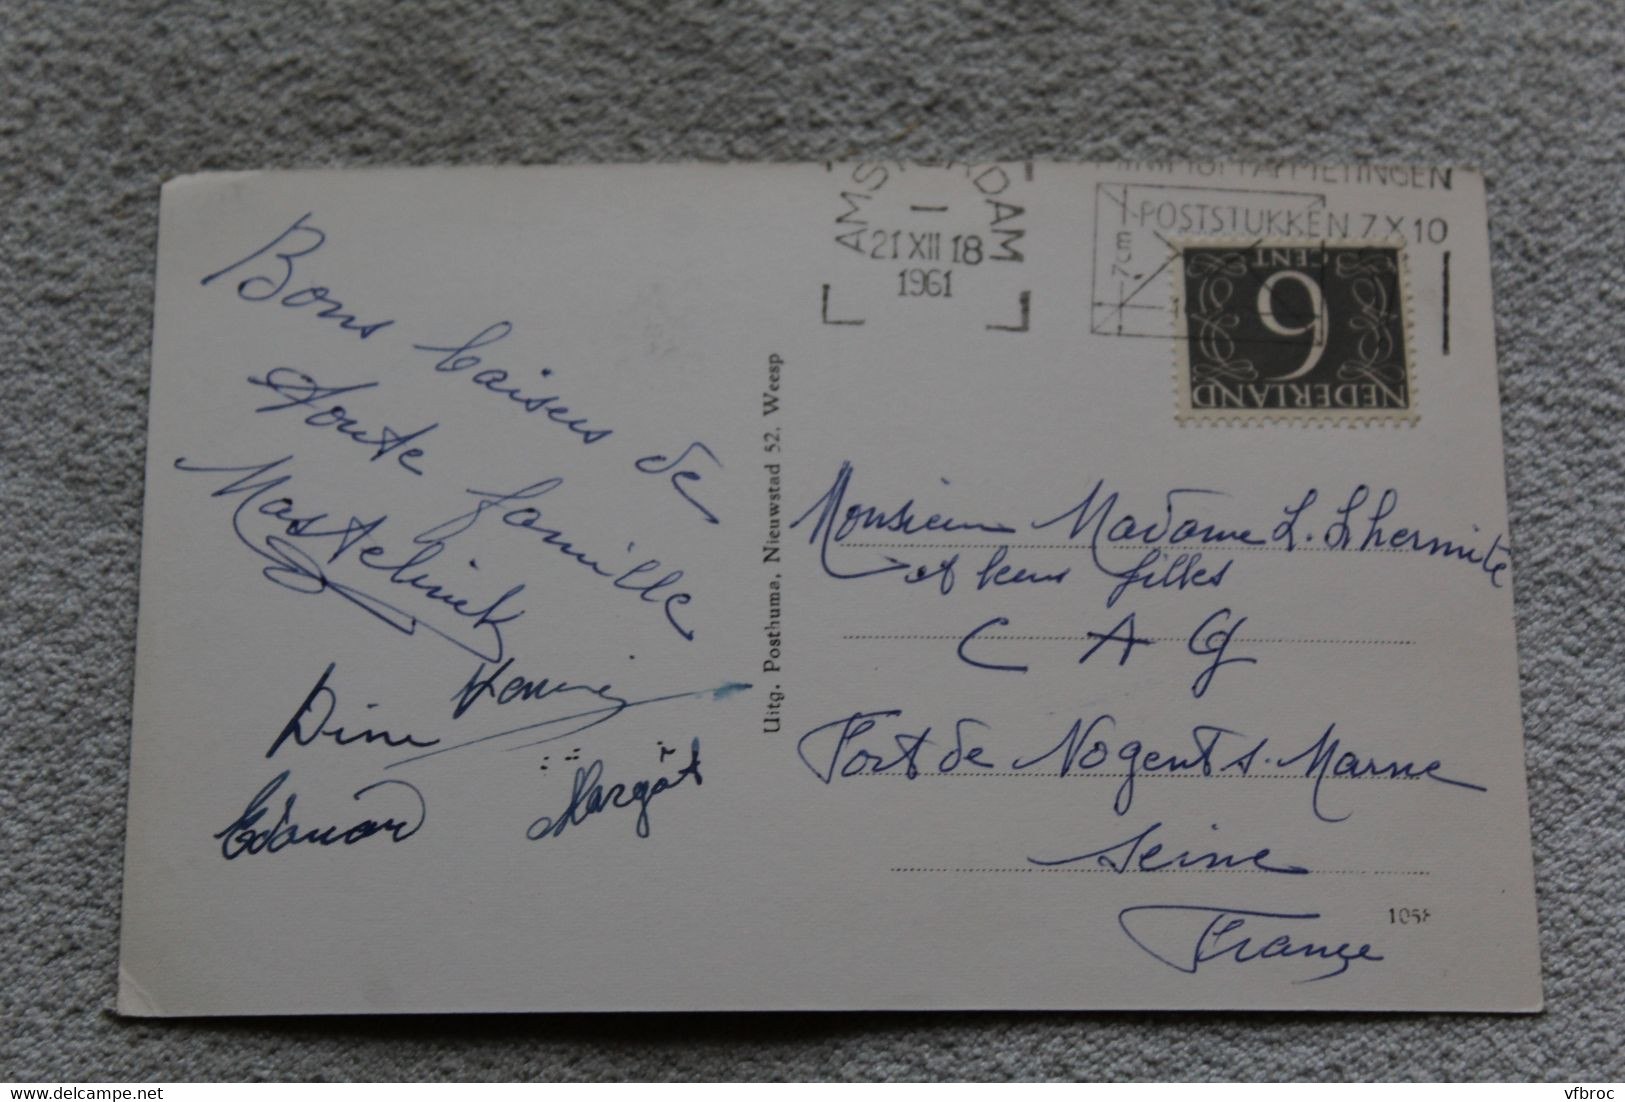 Bons baisers de
toute famille
Mastelinck
Henri
Dine
Edouard
Margôt
Uitg. Posthuma, Nieuwstad 52, Weesp
AMSTERDAM
1
21 XII 18
1961
POSTSTUKKEN 7 X 10
6
CENT
NEDERLAND
Monsieur Madame L. Lhermite
et leurs filles
C A G
Port de Nogent s. Marne
Seine
France
1068
vfbroc